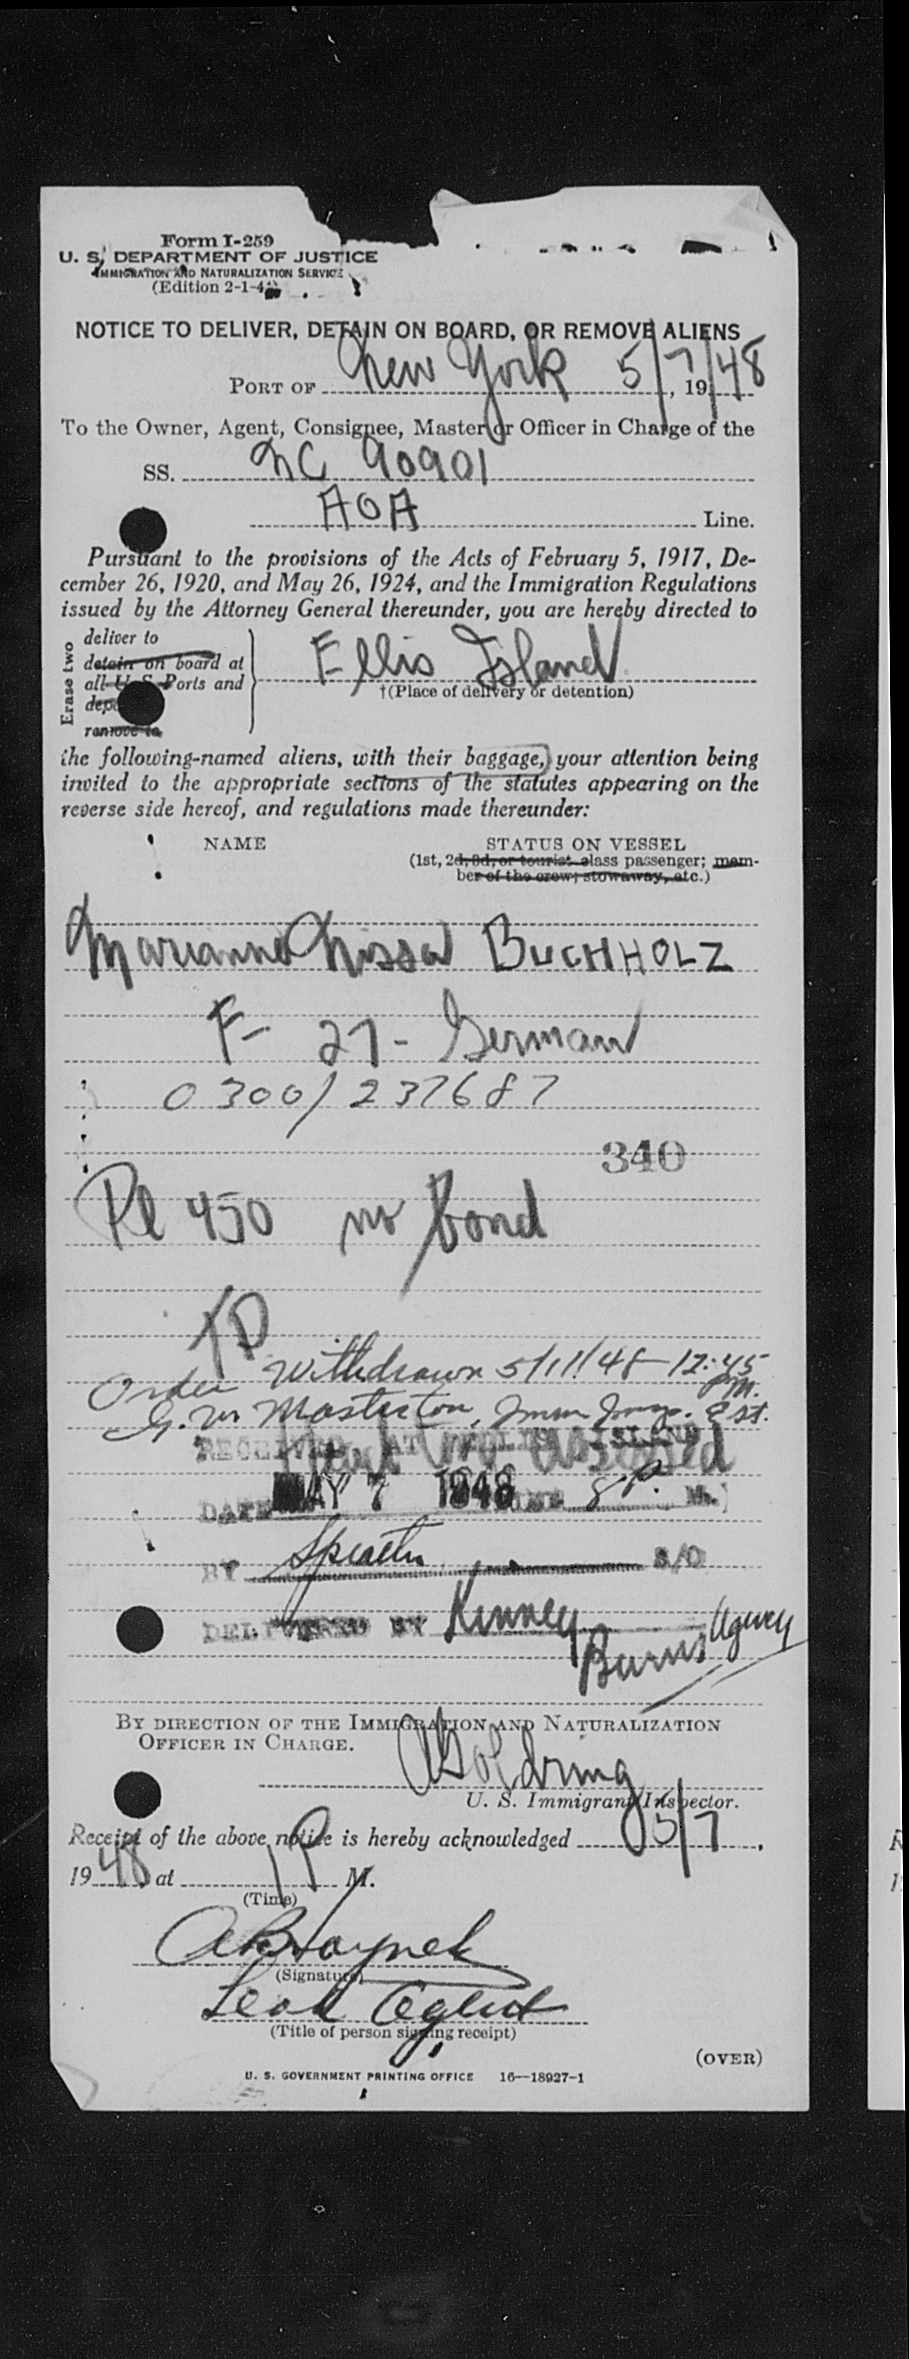 Form I-259
U. S. DEPARTMENT OF JUSTICE
IMMIGRATION AND NATURALIZATION SERVICE
(Edition 2-1-4
NOTICE TO DELIVER, DETAIN ON BOARD, OR REMOVE ALIENS
PORT OF New York 5/7, 19/48
To the Owner, Agent, Consignee, Master or Officer in Charge of the
SS. NC 90901
AOA Line.
Pursuant to the provisions of the Acts of February 5, 1917, De-
cember 26, 1920, and May 26, 1924, and the Immigration Regulations
issued by the Attorney General thereunder, you are hereby directed to
Erase two
deliver to
detain on board at
all U. S. Ports and
remove to
Ellis Island
†(Place of delivery or detention)
the following-named aliens, with their baggage, your attention being
invited to the appropriate sections of the statutes appearing on the
reverse side hereof, and regulations made thereunder:
NAME STATUS ON VESSEL
(1st, 2d, 3d, or tourist class passenger; mem-
ber of the crew; stowaway, etc.)
Marianne Nissa BUCHHOLZ
F- 27- German
0300/237687
340
Pl 450 no bond
TD
Order Withdrawn 5/11/48 12:45 PM.
G. W. Masterton, Imm Insp.
RECEIVED AT ELLIS ISLAND
DATE MAY 7 1948 TIME 8 P. M.
BY S/O
DELIVERED BY Kinney
Burns Agency
BY DIRECTION OF THE IMMIGRATION AND NATURALIZATION
OFFICER IN CHARGE.
Goldring
U. S. Immigrant Inspector.
Receipt of the above notice is hereby acknowledged 5/7,
1948 at 1 P M.
(Time)
(Signature)
Lead
(Title of person signing receipt)
(OVER)
U. S. GOVERNMENT PRINTING OFFICE 16—18927-1